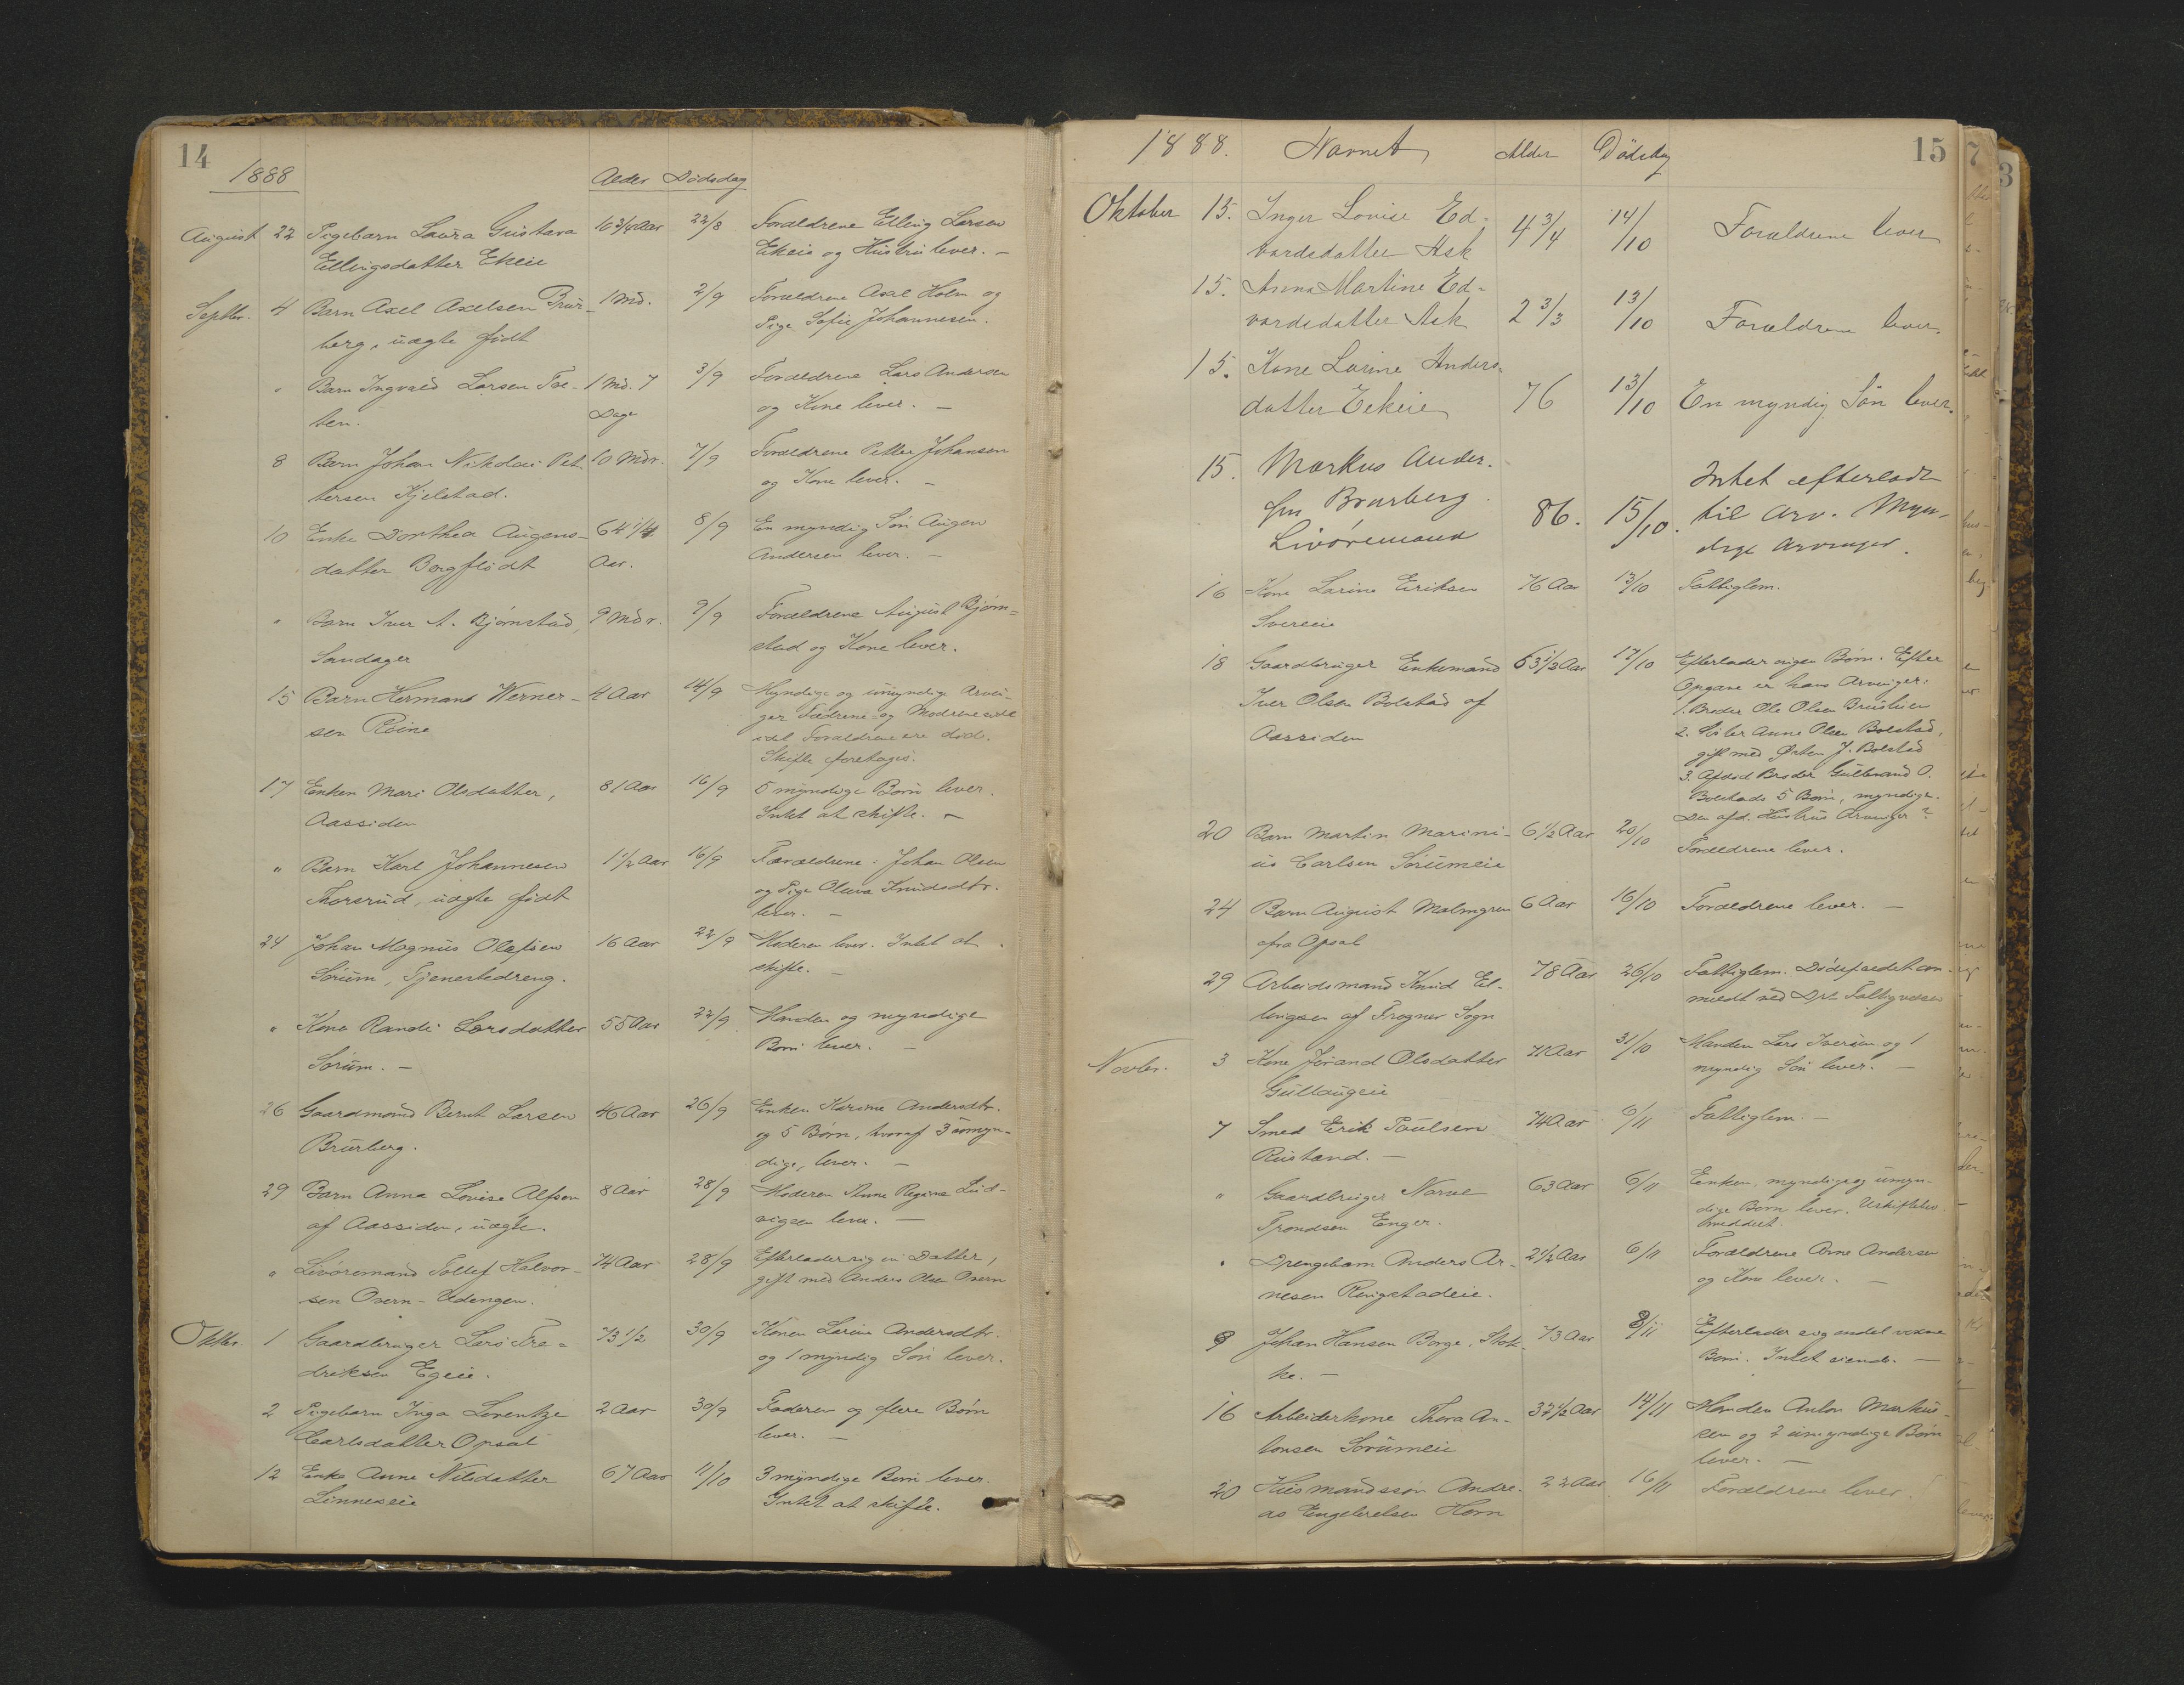 14
1888
Alder Dødsdag
August 22 Pigebarn Laura Gustava 10 3/4 Aar 22/8 Forældrene Elling Larsen
Ellingsdatter Ekeie Ekeie og Hustru lever. –
Septbr. 4 Barn Axel Axelsen Brur- 1 Md. 2/9 Forældrene Axel Holm og
berg, uægte født Pige Sofie Johannesen.
" Barn Ingvald Larsen 1 Md. 7 3/9 Forældrene Lars Andersen
ten. Dage og Kone lever. –
8 Barn Johan Nikolai Pet- 10 Mdr. 7/9 Forældrene Petter Johansen
tersen Kjelstad. og Kone lever. –
10 Enke Dorthea Augens- 64 1/4 8/9 En myndig Søn Augen
datter Bergflødt Aar. Andersen lever. –
" Barn Iver A. Bjørnstad, 9 Mdr. 9/9 Forældrene August Bjørn-
Sandager stad og Kone lever.
15 Barn Hermans Werner- 4 Aar 14/9 Myndige og umyndige Arvin-
sen Røine ger Fædrene- og Modreneside
idet Forældrene ere døde.
Skifte foretages.
17 Enken Mari Olsdatter, 81 Aar 16/9 5 myndige Børn lever.
Aassiden Intet at skifte. –
" Barn Karl Johannesen 1 1/2 Aar 16/9 Forældrene: Johan Olsen
Thorsrud, uægte født og Pige Oluva Knudsdtr.
lever. –
24 Johan Magnus Olafsen 16 Aar 22/9 Moderen lever. Intet at
Sørum, Tjenestedreng. skifte. –
" Kone Randi Larsdatter 55 Aar 22/9 Manden og myndige
Sørum. – Børn lever. –
26 Gaardmand Bernt Larsen 46 Aar 26/9 Enken Karine Andersdtr.
Brurberg. og 5 Børn, hvoraf 3 umyn-
dige, lever. –
29 Barn Anna Lovise Alfsen 8 Aar 28/9 Moderen Anne Regine Lud-
af Aassiden, uægte. vigsen lever. –
" Livøremand Tollef Halvor- 74 Aar 28/9 Efterlader sig en Datter,
sen Overn-Udengen. gift med Anders Olsen Overn
Oktbr. 1 Gaardbruger Lars Fre- 73 1/2 30/9 Konen Larine Andersdtr.
driksen Egeie. og 1 myndig Søn lever.
2 Pigebarn Inga Lorentze 2 Aar 30/9 Faderen og flere Børn
Carlsdatter Opsal lever. –
12 Enke Anne Nilsdatter 67 Aar 11/10 3 myndige Børn lever.
Linneseie Intet at skifte.
15
1888. Navnet Alder Dödsdag
Oktober 15. Inger Lovise Ed- 4 3/4 14/10 Forældrene lever
vardsdatter Ask
15. Anna Martine Ed- 2 3/3 13/10 Forældrene lever.
vardsdatter Ask
15. Kone Larine Anders- 76 13/10 En myndig Sön lever.
datter Eekeie
15. Markus Ander- Intet efterladt
sen Brurberg. 86. 15/10. til Arv. Myn-
Livøremand dige Arvinger.
16 Kone Larine Eriksen 76 Aar 13/10 Fattiglem.
18 Gaardbruger Enkemand 63 1/2 Aar 17/10 Efterlader ingen Børn. Efter
Iver Olsen Bolstad af Opgave er hans Arvinger:
Aassiden 1. Broder Ole Olsen
2. Søster Anne Olsen Bolstad,
gift med J. Bolstad
3. Afdød Broder Gulbrand O.
Bolstads 5 Børn, myndige.
Den afd. Hustrus Arvinger?
20 Barn Martin Marini- 6 1/2 Aar 20/10 Forældrene lever.
us Carlsen Sørumeie
24 Barn August Malmgren 6 Aar 16/10 Forældrene lever. –
fra Opsal
29 Arbeidsmand Knud El- 78 Aar 26/10 Fattiglem. Dødsfaldet an-
lingsen af Frogner Sogn meldt ved
Novbr. 3 Kone Jørand Olsdatter 71 Aar 31/10 Manden Lars Iversen og 1
Gullaugeie myndig Søn lever. –
7 Smed Erik Poulsen 74 Aar 6/11 Fattiglem. –
Rustand. –
" Gaardbruger Narve 63 Aar 6/11 Enken, myndige og umyn-
Trondsen Enger. dige Børn lever.
" Drengebarn Anders Ar- 2 1/2 Aar 6/11 Forældrene Arne Andersen
nesen Ringstadeie. og Kone lever. –
9 Johan Hansen Borge, Stok- 73 Aar 8/11 Efterlader sig andel voxne
ke. – Børn. Intet eiende. –
16 Arbeiderkone Thora An- 37 1/2 Aar 14/11 Manden Anton Markus-
tonsen Sørumeie sen og 2 umyndige Børn
lever. –
20 Husmandssøn Andre- 22 Aar 16/11 Forældrene lever.
as Engebretsen Horn